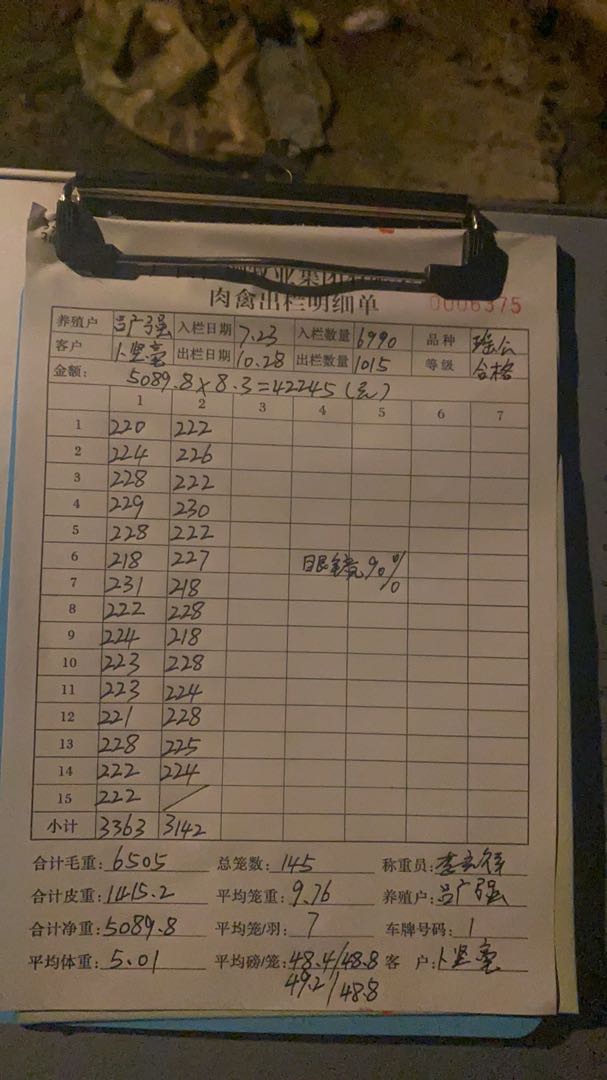 业集团
肉禽出栏明细单 0006375
养殖户 吕广强 入栏日期 7.23 入栏数量 6990 品种
客户 卜坚 出栏日期 10.28 出栏数量 1015 等级 合格
金额: 5089.8×8.3=42245(元)
1 2 3 4 5 6 7
1 220 222
2 224 226
3 228 222
4 229 230
5 228 222
6 218 227 90%
7 231 218
8 222 228
9 224 218
10 223 228
11 223 224
12 221 228
13 228 225
14 222 224
15 222 /
小计 3363 3142
合计毛重: 6505 总笼数: 145 称重员: 李
合计皮重: 1415.2 平均笼重: 9.76 养殖户: 吕广强
合计净重: 5089.8 平均笼/羽: 7 车牌号码: 1
平均体重: 5.01 平均磅/笼: 48.4/48.8 客 户: 卜坚
49.2/48.8